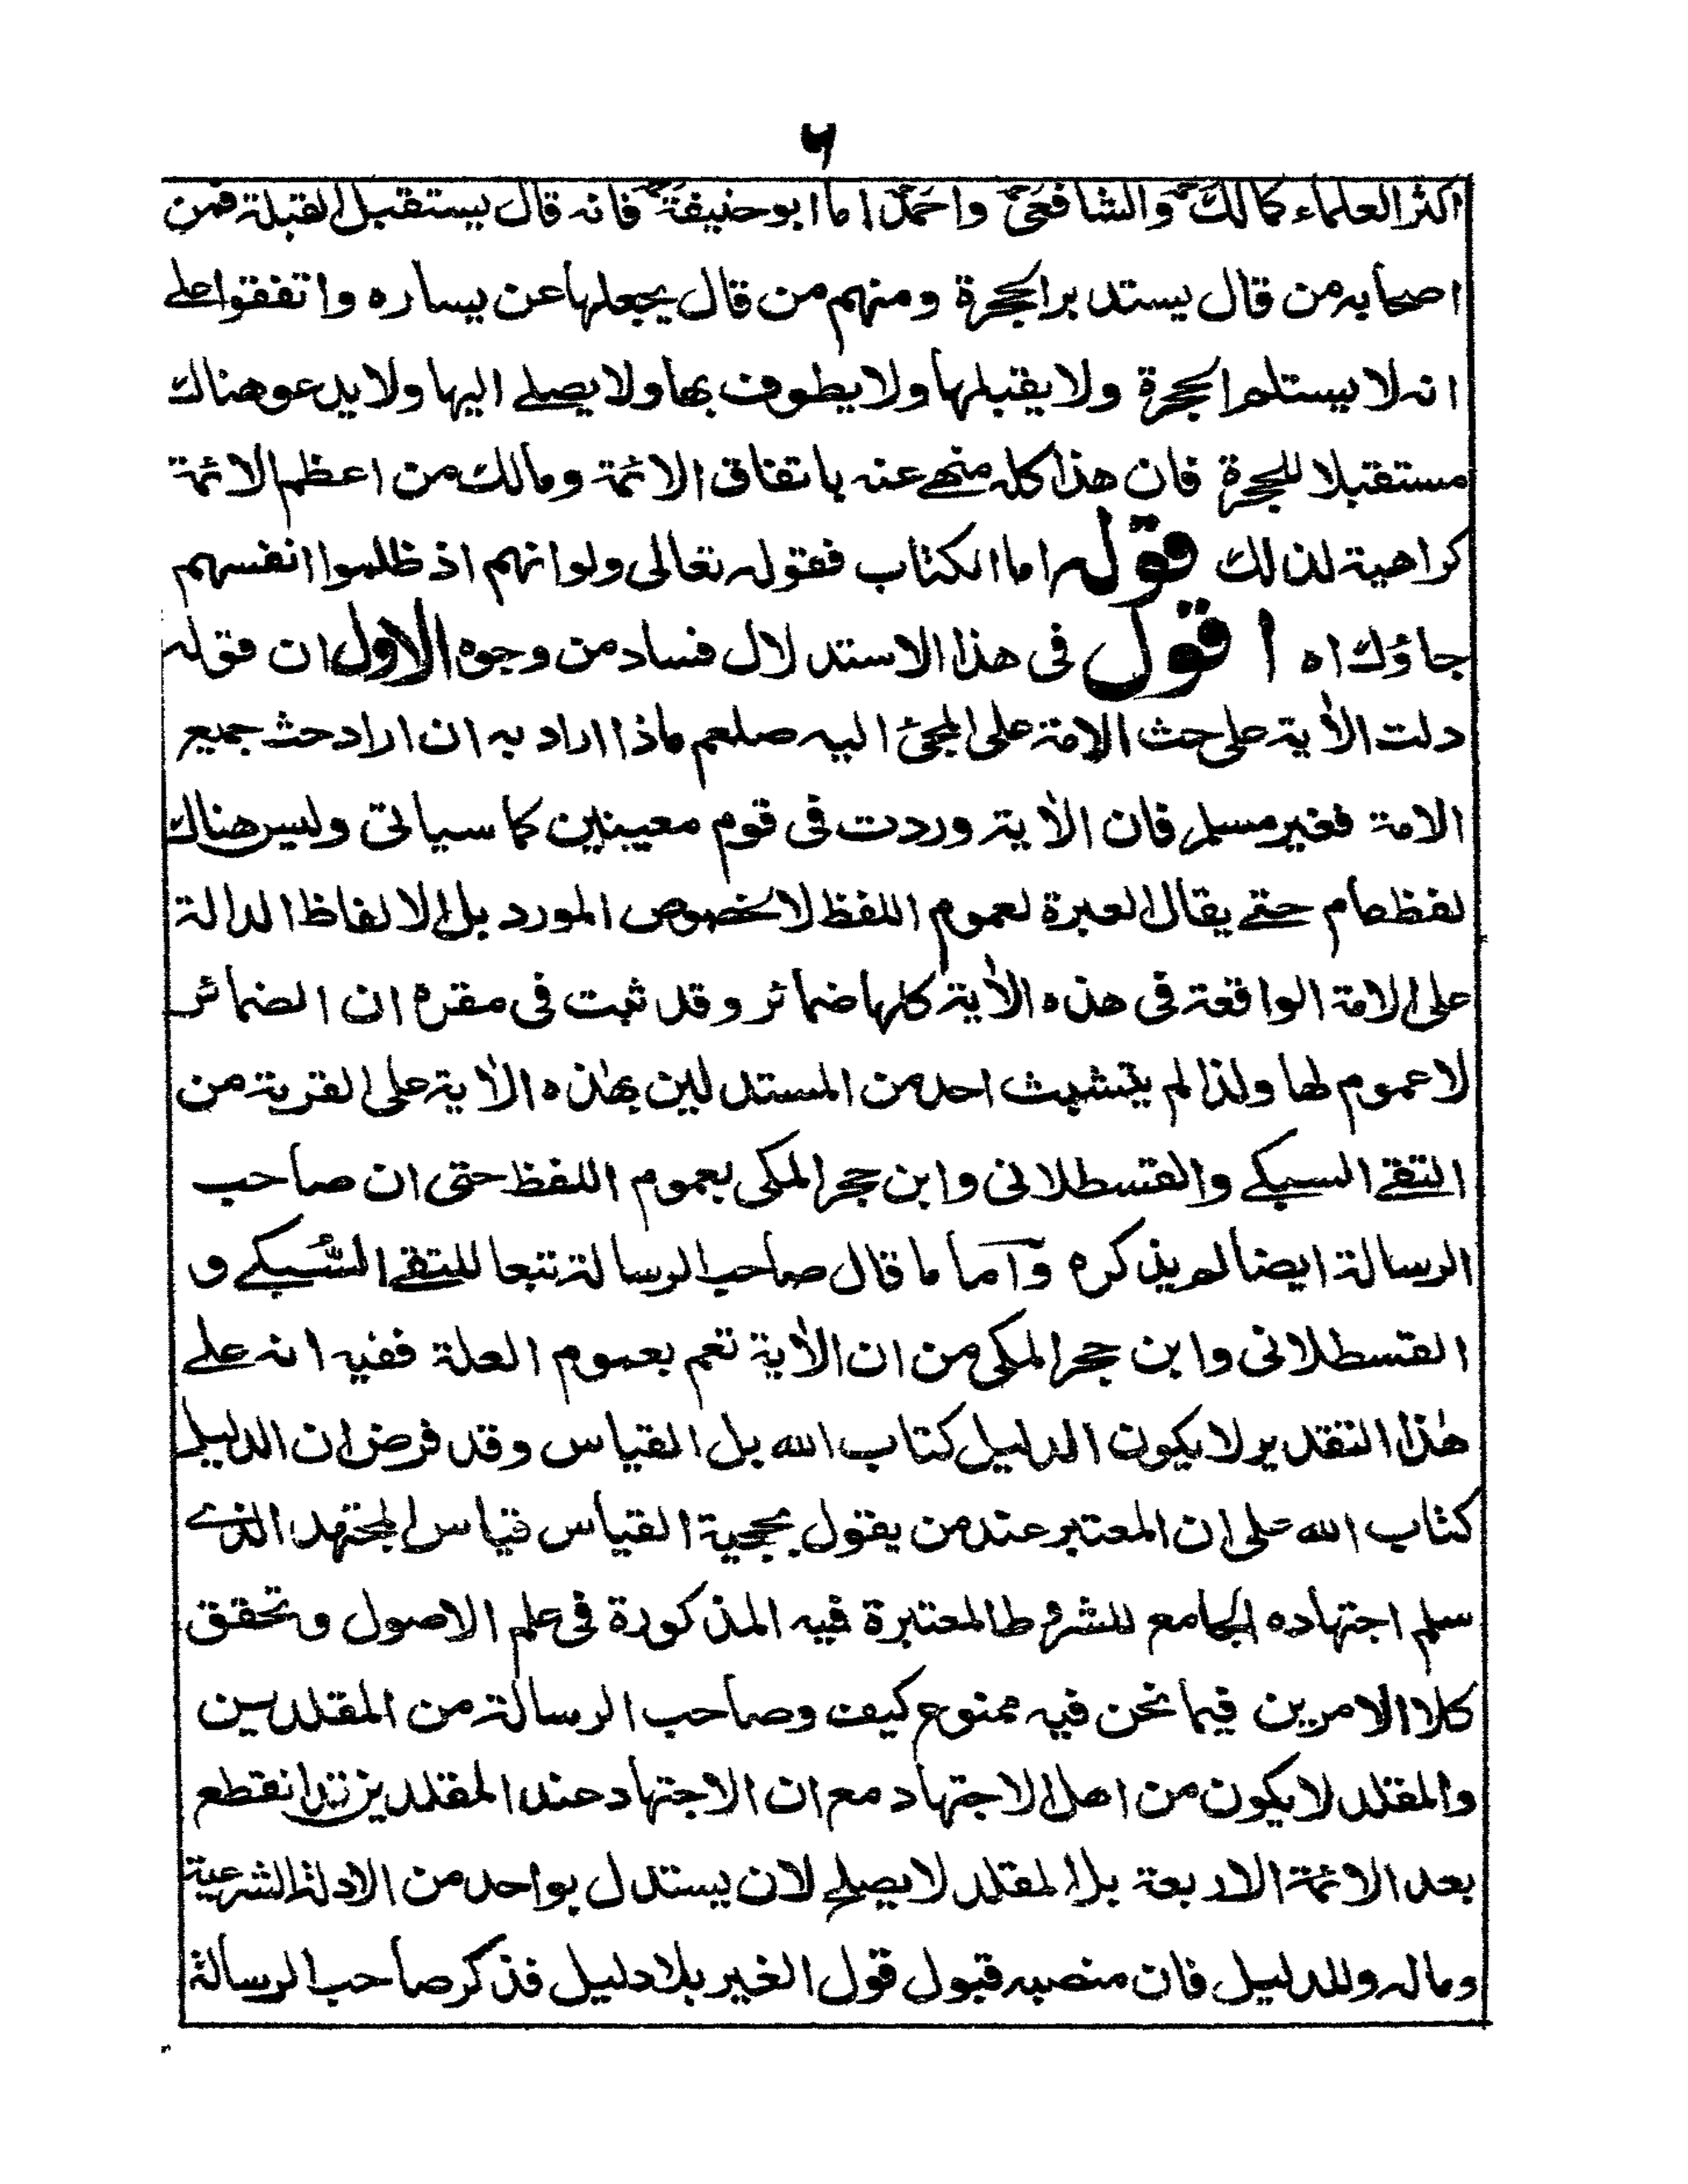 ٦
اكثر العلماء كمالك والشافعي واحمد اما ابو حنيفة فانه قال يستقبل القبلة فمن
اصحابه من قال يستدبر الحجرة ومنهم من قال يجعلها عن يساره واتفقوا على
انه لا يستلم الحجرة ولا يقبلها ولا يطوف بها ولا يصلے اليها ولا يدعو هناك
مستقبلا للحجرة فان هذا كله منهے عنه باتفاق الائمة ومالك من اعظم الائمة
كراهية لذلك قوله اما الكتاب فقوله تعالى ولو انهم اذ ظلموا انفسهم
جاؤك اه اقول فى هذا الاستدلال فساد من وجوه الاول ان قوله
دلت الاٰية على حث الامة على المجئ اليه صلعم ماذا اراد به ان اراد حث جميع
الامة فغير مسلم فان الاٰية وردت فى قوم معينين كما سياتى وليس هناك
لفظ عام حتے يقال العبرة لعموم اللفظ لا لخصوص المورد بل الالفاظ الدالة
على الامة الواقعة فى هذه الاٰية كلها ضمائر وقد ثبت فى مقره ان الضمائر
لا عموم لها ولذا لم يتشبث احد من المستدلين بهٰذه الاٰية على القربة من
التقے السبكے والقسطلانى وابن حجر المكى بعموم اللفظ حتى ان صاحب
الرسالة ايضا لم يذكره وآما ما قال صاحب الرسالة تبعا للتقے السُّبكے و
القسطلانى وابن حجر المكى من ان الاٰية تعم بعموم العلة ففيه انه علے
هٰذا التقدير لا يكون الدليل كتاب الله بل القياس وقد فرض ان الدليل
كتاب الله على ان المعتبر عند من يقول بحجية القياس قياس المجتهد الذے
سلم اجتهاده الجامع للشروط المعتبرة فيه المذكورة فى علم الاصول وتحقق
كلا الامرين فيما نحن فيه ممنوع كيف وصاحب الرسالة من المقلدين
والمقلد لا يكون من اهل الاجتهاد مع ان الاجتهاد عند المقلدين قد انقطع
بعد الائمة الاربعة بل المقلد لا يصلح لان يستدل بواحد من الادلة الشرعية
وماله وللدليل فان منصبه قبول قول الغير بلا دليل فذكر صاحب الرسالة